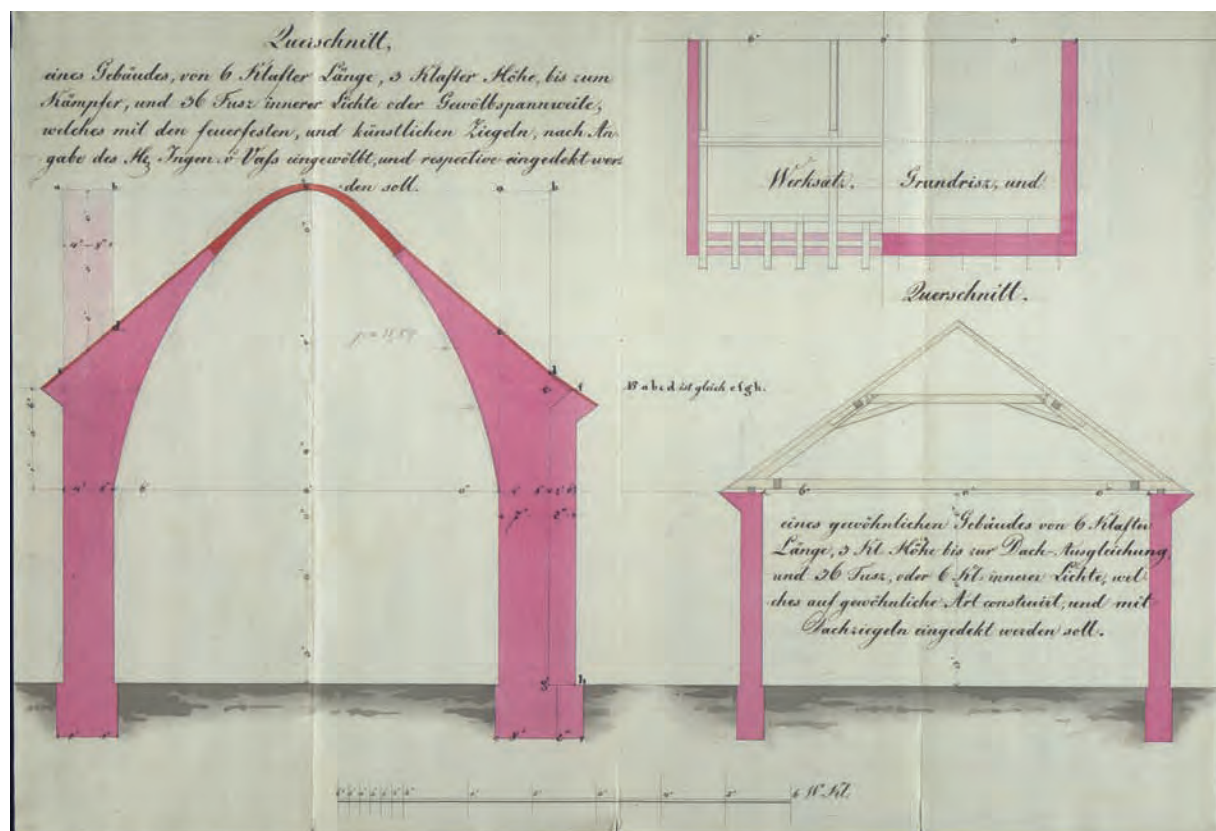 Querschnitt,
eines Gebäudes, von 6 Klafter Länge, 3 Klafter Höhe, bis zum
Kämpfer, und 36 Fusz innerer Lichte oder Gewölbspannweite,
welches mit den feuerfesten, und künstlichen Ziegeln, nach An-
gabe des H. Ingen. v. Vass eingewölbt, und respective eingedekt wer-
den soll.
a b a b
Werksatz. Grundrisz, und
Querschnitt.
N a b c d ist gleich e f g h.
eines gewöhnlichen Gebäudes von 6 Klafter
Länge, 3 Kl. Höhe bis zur Dach-Ausgleichung,
und 36 Fusz, oder 6 Kl. innerer Lichte, wel-
ches auf gewöhnliche Art construirt, und mit
Dachziegeln eingedekt werden soll.
6 W. Kl.